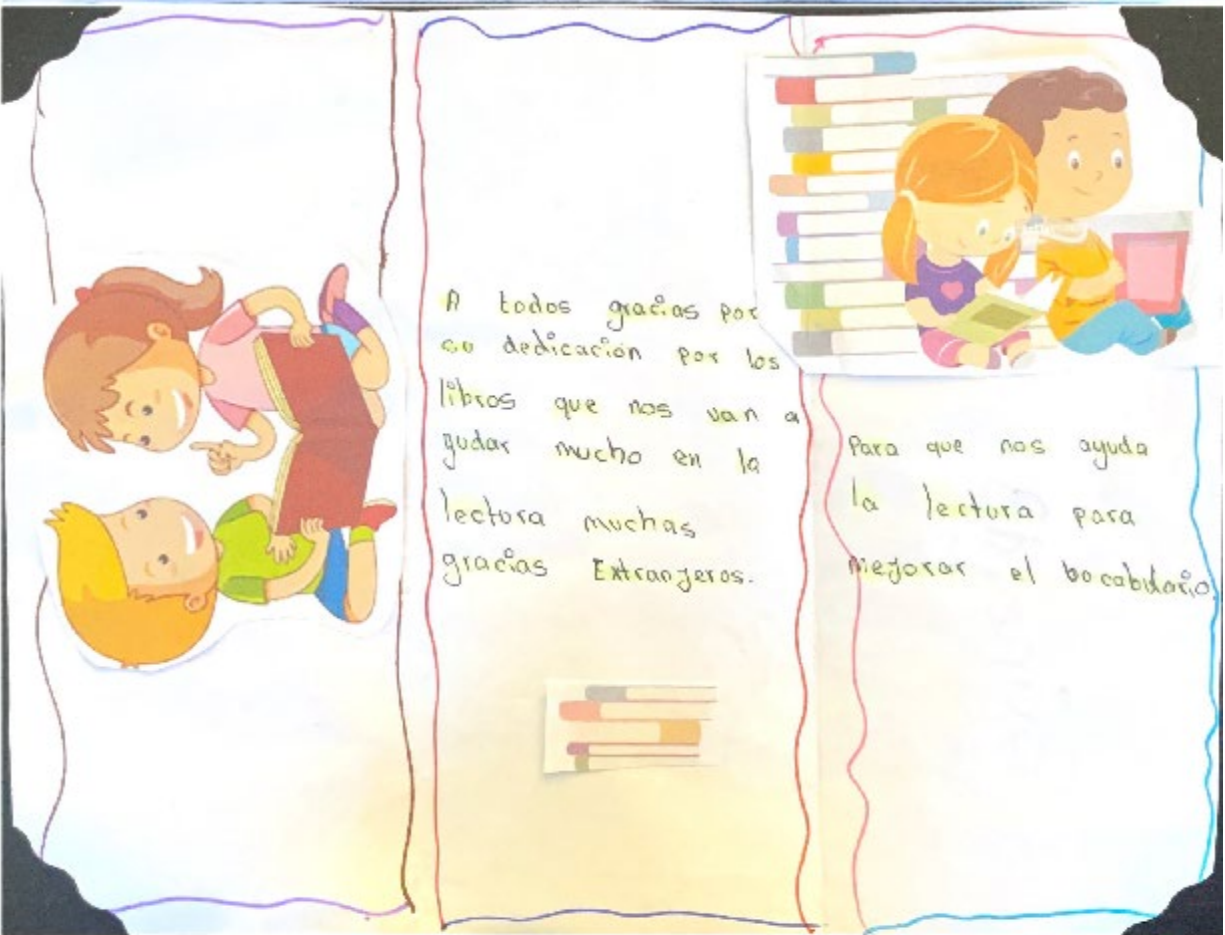 A todos gracias por
su dedicación por los
libros que nos van a
yudar mucho en la
lectura muchas
gracias Extranjeros.
Para que nos ayuda
la lectura para
mejorar el bocabulario